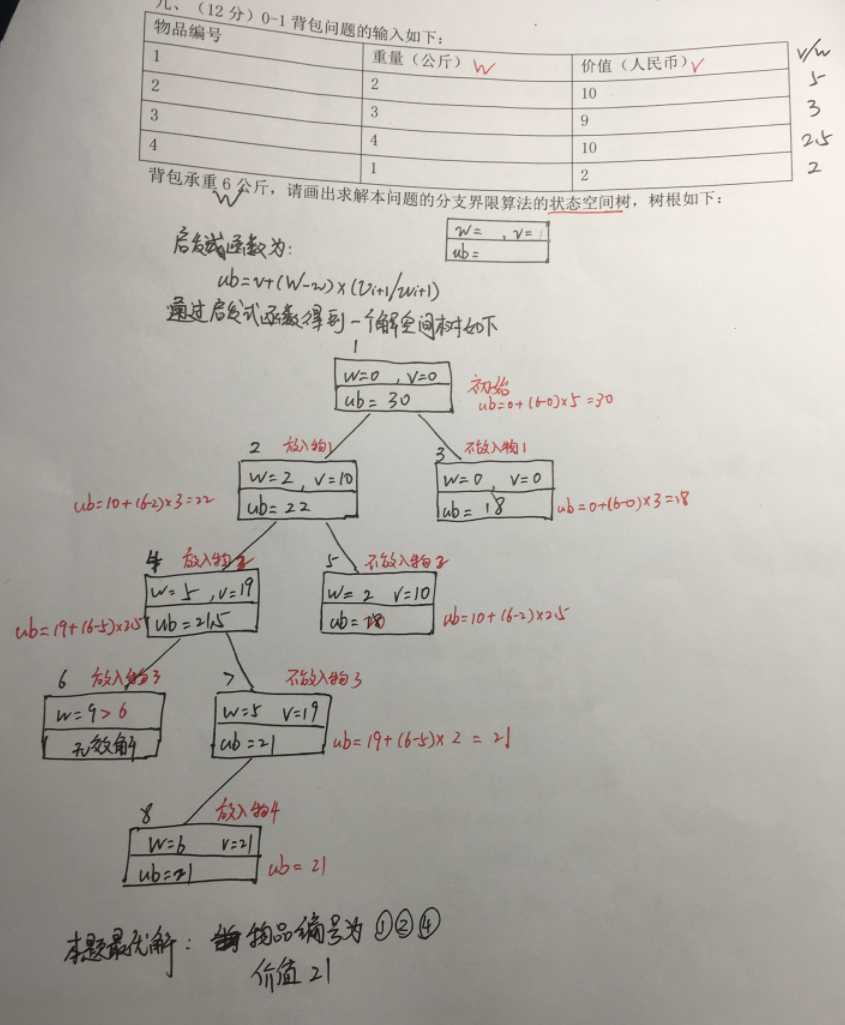 九、（12分）0-1背包问题的输入如下：
物品编号 重量（公斤） W 价值（人民币） V v/w
1 2 10 5
2 3 9 3
3 4 10 2.5
4 1 2 2
背包承重6公斤，请画出求解本问题的分支界限算法的状态空间树，树根如下：
W
w= , v=
ub=
启发式函数为:
ub=v+(W-w)×(Vi+1/wi+1)
通过启发式函数得到一个解空间树如下
1
w=0 , v=0
ub= 30
初始
ub=0+(6-0)×5=30
2 放入物1
w=2 , v=10
ub=22
ub=10+(6-2)×3=22
3 不放入物1
w=0 , v=0
ub= 18
ub=0+(6-0)×3=18
4 放入物2
w=5 , v=19
ub=21.5
ub=19+(6-5)×2.5
5 不放入物2
w=2 v=10
ub=
ub=10+(6-2)×2.5
6 放入物3
w=9>6
无效解
7 不放入物3
w=5 v=19
ub=21
ub=19+(6-5)×2=21
8 放入物4
w=6 v=21
ub=21
ub=21
本题最优解: 物品编号为①②④
价值21